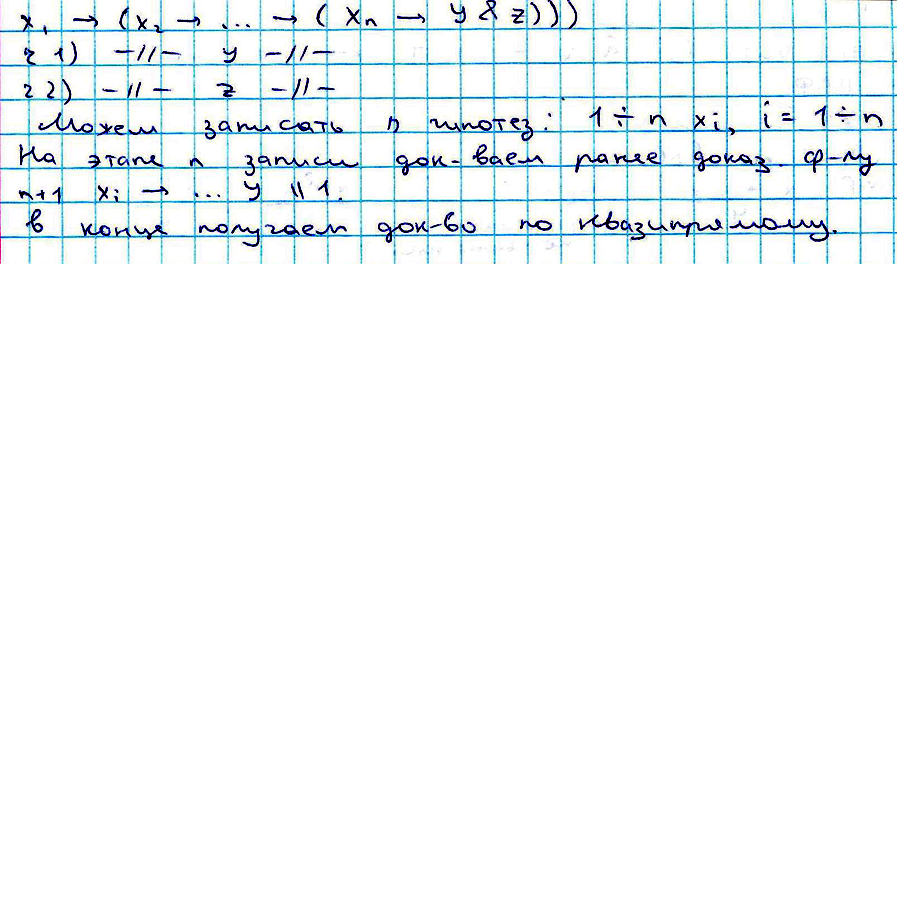 x₁ → (x₂ → ... → ( xₙ → y & z)))
2 1) –//– y –//–
2 2) –//– z –//–
Можем записать n гипотез: 1 ÷ n xᵢ, i = 1 ÷ n
На этапе n записи док-ваем ранее доказ. ф-лу
n+1 xᵢ → ... y \\ 1.
в конце получаем док-во по квазипрямому.